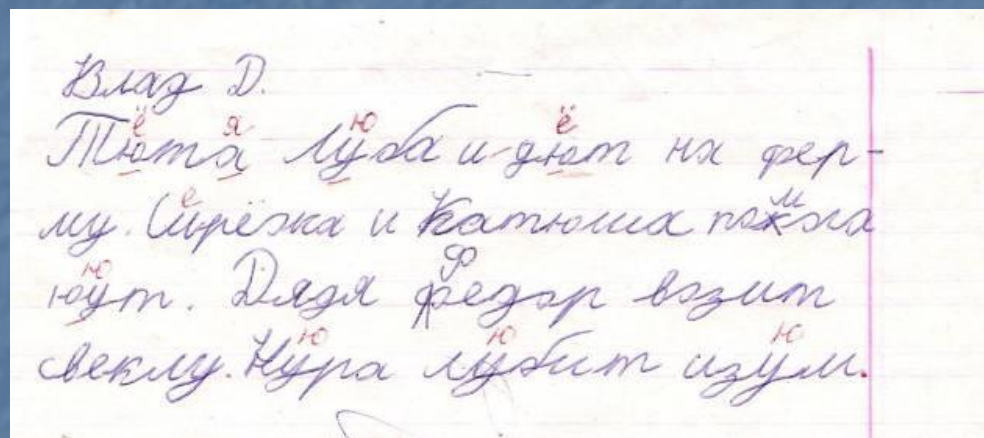 Влад Д.
Тюта Луба и дют на фер-
му. Сирёжка и Катюша помога
юут. Дядя Федор возит
свеклу. Нура лубит изум.